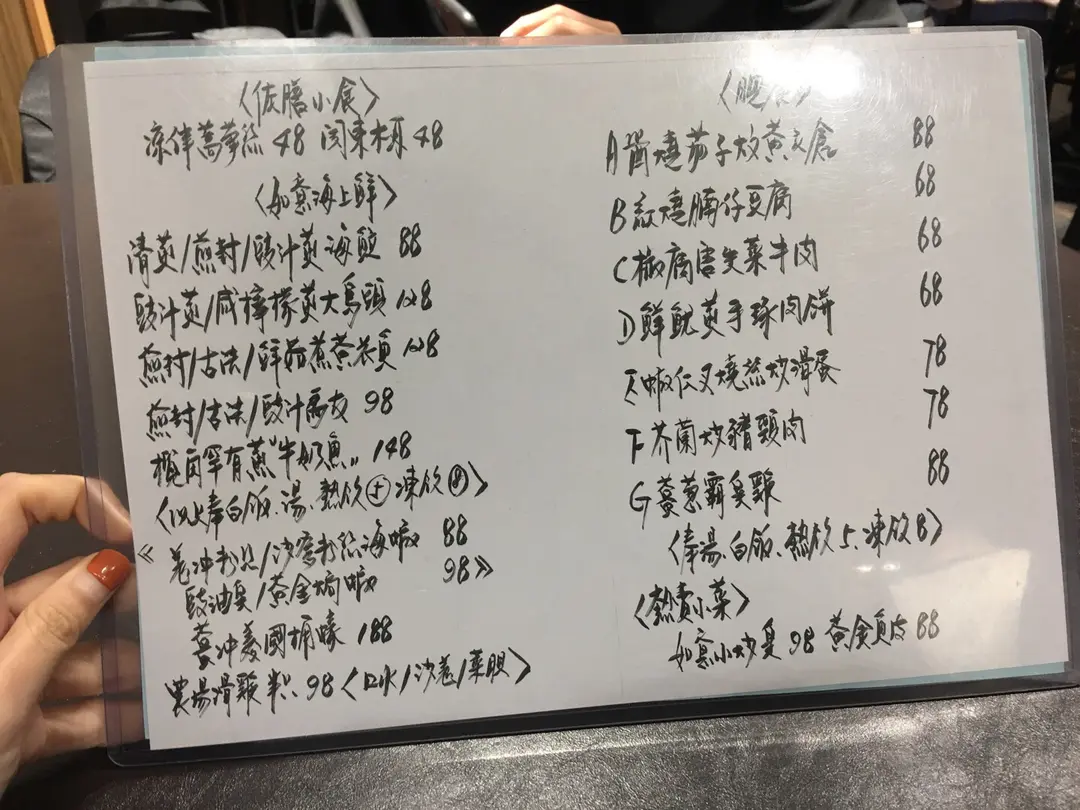 〈佐膳小食〉
涼伴萵筍絲 48 関東木耳 48
〈如意海上鮮〉
清蒸/煎封/豉汁蒸海 88
豉汁蒸/咸檸檬蒸大烏頭 128
煎封/古法/鮮茄蒸黃衣魚 128
煎封/古法/豉汁馬友 98
欖角罕有蒸"牛奶魚" 148
〈以上奉白飯、湯、熱飲⊕凍飲⑧〉
《 冲粉絲/沙爹粉絲海蝦 88
豉油皇/黃金焗蝦 98》
冲美國桶蠔 188
農場滑雞半 98〈口水/沙姜/菜胆〉
A 燒茄子炆黃衣 88
B 紅燒腩仔豆腐 68
C 椒腐唐生菜牛肉 68
D 鮮魷蒸手琢肉餅 68
E 蝦仁叉燒絲炒滑蛋 78
F 芥蘭炒豬頸肉 78
G 薑蔥霸皇雞 88
〈奉湯、白飯、熱飲5、凍飲8〉
〈熱賣小菜〉
如意小炒皇 98 黃金魚皮 88